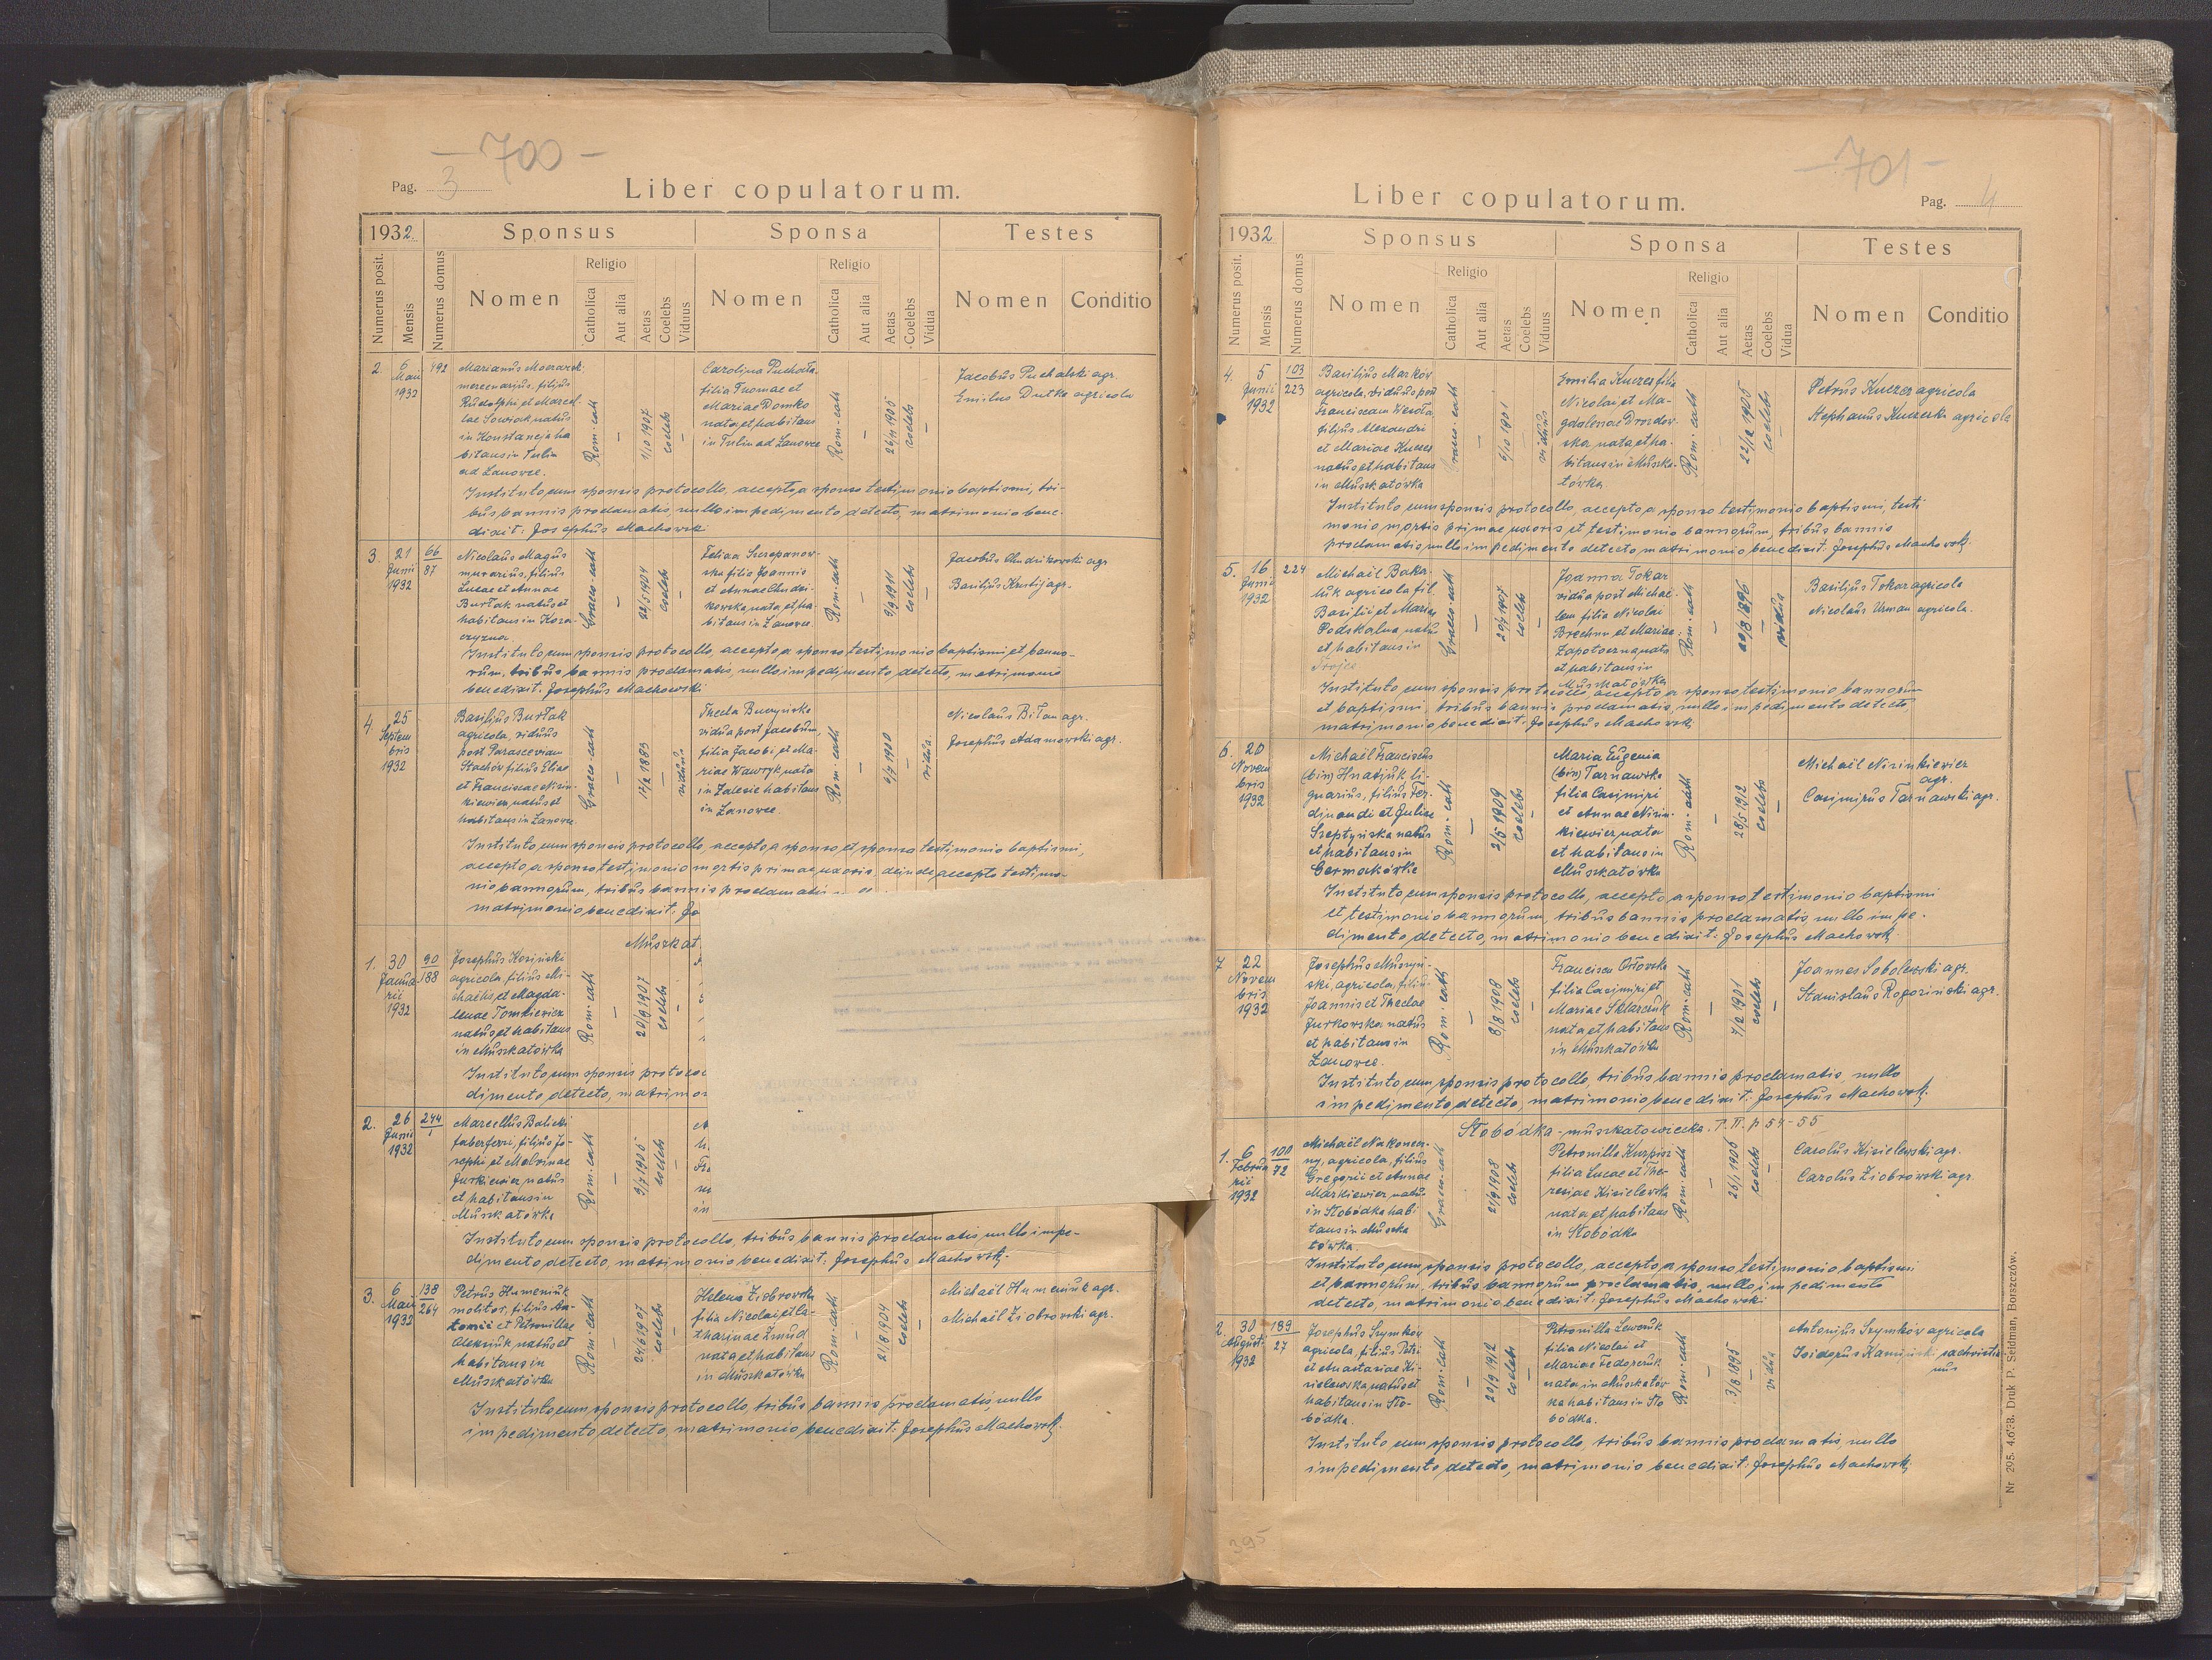 - 700 -
Pag. 3
Liber copulatorum.
1932.
Sponsus
Sponsa
Testes
Numerus posit.
Mensis
Numerus domus
Nomen
Religio
Catholica
Aut alia
Aetas
Coelebs
Viduus
Nomen
Religio
Catholica
Aut alia
Aetas
Coelebs
Vidua
Nomen
Conditio
2.
6
Maii
1932
492
Marianus
mercenarius, filius
Rudolphi et Marcel-
lae Sowiak natus
in Konstancja ha
bitans in Tulin
ad Lanowce.
Rom-cath
-
1/10 1907
coelebs
-
Carolina Puchała
filia Thomae et
Mariae Domko
nata et habitans
in Tulin ad Lanowce
Rom-cath
-
26/11 1905
coelebs
-
Jacobus Puchalski agr.
Emilus Dutka agricola
Instituto cum sponsis protocollo, accepto a sponso testimonio baptismi, tri-
bus bannis proclamatis, nullo impedimento detecto, matrimonio bene-
dixit: Josephus Machowski
3.
21
Junii
1932
66
87
Nicolaus Magus
murarius, filius
Lucae et Annae
Burtak natus et
habitans in Koza-
czyzna.
Graeco-cath
-
22/5 1904
coelebs
-
Felixa Szczepanow-
ska filia Joannis
et Annae Chudzi-
kowska nata et ha-
bitans in Lanowce
Rom-cath
-
9/9 1911
coelebs
-
Jacobus Chudzikowski agr
Basilius Krutij agr.
Instituto cum sponsis protocollo, accepto a sponso testimonio baptismi et banno-
rum, tribus bannis proclamatis, nullo impedimento detecto, matrimonio
benedixit. Josephus Machowski
4.
25
Septem
bris
1932
Basilius Burtak
agricola, viduus
post Parasceviam
Stachów filius Eliae
et Franciscae Nizin-
kiewicz natus et
habitans in Lanowce.
Graeco-cath
-
14/2 1883
-
viduus
Thecla Buczyńska
vidua post Jacobum,
filia Jacobi et Ma-
riae Wawryk nata
in Zalesie habitans
in Lanowce.
Rom-cath
-
-
vidua
Nicolaus Bilan agr.
Josephus Adamowski agr.
Instituto cum sponsis protocollo, accepto a sponso et sponsa testimonio baptismi,
accepto a sponso testimonio mortis primae uxoris, deinde accepto testimo-
nio bannorum, tribus bannis proclamatis
matrimonio benedixit: Jo
Muszkat
1.
30
Janua
rii
1932
90
188
Josephus Kosiński
agricola filius Mi-
chaelis et Magda-
lenae Tomkiewicz
natus et habitans
in Muszkatówka
Rom-cath
-
20/9 1907
coelebs
-
Instituto cum sponsis protocol
dimento detecto, matrimon
2.
26
Junii
1932
244
1
Marcellus Balicki
faber ferri, filius Jo-
sephi et Malvinae
Jurkiewicz natus
et habitans in
Muszkatówka
Rom-cath
-
9/7 1905
coelebs
-
Instituto cum sponsis protocollo, tribus bannis proclamatis nullo impe-
dimento detecto, matrimonio benedixit: Josephus Machowski
3.
6
Maii
1932
138
264
Petrus Humeniuk
molitor, filius An-
tonii et Petronillae
Oleksiuk natus et
habitans in
Muszkatówka
Rom-cath
-
24/6 1907
coelebs
-
Helena Ziobrowska
filia Nicolai et Ca-
tharinae Żmud
nata et habitans
in Muszkatówka
Rom-cath
-
21/8 1904
coelebs
-
Michaël Humeniuk agr.
Michaël Ziobrowski agr.
Instituto cum sponsis protocollo, tribus bannis proclamatis, nullo
impedimento detecto, matrimonio benedixit: Josephus Machowski
- 701 -
Liber copulatorum.
Pag. 4
1932
Sponsus
Sponsa
Testes
Numerus posit.
Mensis
Numerus domus
Nomen
Religio
Catholica
Aut alia
Aetas
Coelebs
Viduus
Nomen
Religio
Catholica
Aut alia
Aetas
Coelebs
Vidua
Nomen
Conditio
4.
5
Junii
1932
103
223
Basilius Marków
agricola, viduus post
Franciscam Wesoła
filius Alexandri
et Mariae Kuczer
natus et habitans
in Muszkatówka
Graeco-cath
-
6/10 1901
-
viduus
Emilia Kuczer filia
Nicolai et Ma-
gdalenae Drozdow-
ska nata et ha-
bitans in Muszka-
tówka
Rom-cath
-
22/12 1905
coelebs
-
Petrus Kuczer agricola
Stephanus Kuczerka agricola
Instituto cum sponsis protocollo, accepto a sponso testimonio baptismi, testi
monio mortis primae uxoris et testimonio bannorum, tribus bannis
proclamatis nullo impedimento detecto matrimonio benedixit: Josephus Machowski
5.
16
Junii
1932
224
Michaël Baka-
luk agricola fil.
Basilii et Mariae
Podskalna natus
et habitans in
Trójca
Graeco-cath
-
20/7 1907
coelebs
-
Joanna Tokar
vidua post Michae-
lem filia Nicolai
Brechun et Mariae
Zapotoczna nata
et habitans in
Muszkatówka
Rom-cath
-
20/8 1896
-
vidua
Basilius Tokar agricola
Nicolaus Urman agricola.
Instituto cum sponsis protocollo accepto a sponso testimonio bannorum
et baptismi, tribus bannis proclamatis, nullo impedimento detecto
matrimonio benedixit: Josephus Machowski
6.
20
Novem
bris
1932
Michaël Franciscus
(bin) Hnatiuk li-
gnarius, filius Fer-
dinandi et Juliae
Szeptyńska natus
et habitans in
Germakówka
Rom-cath
-
2/5 1909
coelebs
-
Maria Eugenia
(bin) Tarnawska
filia Casimiri
et Annae Nizin-
kiewicz nata
et habitans in
Muszkatówka
Rom-cath
-
28/5 1912
coelebs
-
Michaël Nizinkiewicz
agr.
Casimirus Tarnawski agr.
Instituto cum sponsis protocollo, accepto a sponso testimonio baptismi
et testimonio bannorum, tribus bannis proclamatis nullo impe-
dimento detecto, matrimonio benedixit: Josephus Machowski
7
22
Novem
bris
1932
Josephus Muszyń-
ski, agricola, filius
Joannis et Theclae
Jurkowska natus
et habitans in
Lanowce.
Rom-cath
-
8/8 1908
coelebs
-
Francisca Orłowska
filia Casimiri et
Mariae Sklarczuk
nata et habitans
in Muszkatówka
Rom-cath
-
7/2 1901
coelebs
-
Joannes Sobolewski agr.
Stanislaus Rogoziński agr.
Instituto cum sponsis protocollo, tribus bannis proclamatis, nullo
impedimento detecto, matrimonio benedixit: Josephus Machowski
Słobódka-muszkatowiecka. T. II. p 54-55
1.
6
Februa
rii
1932
100
72
Michaël Nakonecz-
ny, agricola, filius
Gregorii et Annae
Markiewicz natus
in Słobódka habi
tans in Muszka
tówka.
Graeco-cath
-
21/9 1908
coelebs
-
Petronilla Kurpisz
filia Lucae et The-
resiae Kisielewska
nata et habitans
in Słobódka
Rom-cath
-
26/1 1906
coelebs
-
Carolus Kisielewski agr.
Carolus Ziobrowski agr.
Instituto cum sponsis protocollo, accepto a sponso testimonio baptismi
et bannorum, tribus bannorum proclamatis, nullo impedimento
detecto, matrimonio benedixit: Josephus Machowski
2.
30
August.
1932
189
27
Josephus Szymków
agricola, filius Petri
et Anastasiae Ki-
sielewska, natus et
habitans in Sło-
bódka.
Rom-cath
-
20/9 1912
coelebs
-
Petronilla Lewczuk
filia Nicolai et
Mariae Fedorczuk
nata in Muszkatów
ka habitans in Sło
bódka.
Rom-cath
-
3/8 1895
-
vidua
Antonius Szymków agricola
Isidorus Kamiński sachristia
nus
Instituto cum sponsis protocollo, tribus bannis proclamatis, nullo
impedimento detecto, matrimonio benedixit: Josephus Machowski
395
Nr 295. 4.628. Druk P. Seidman, Borszczów.